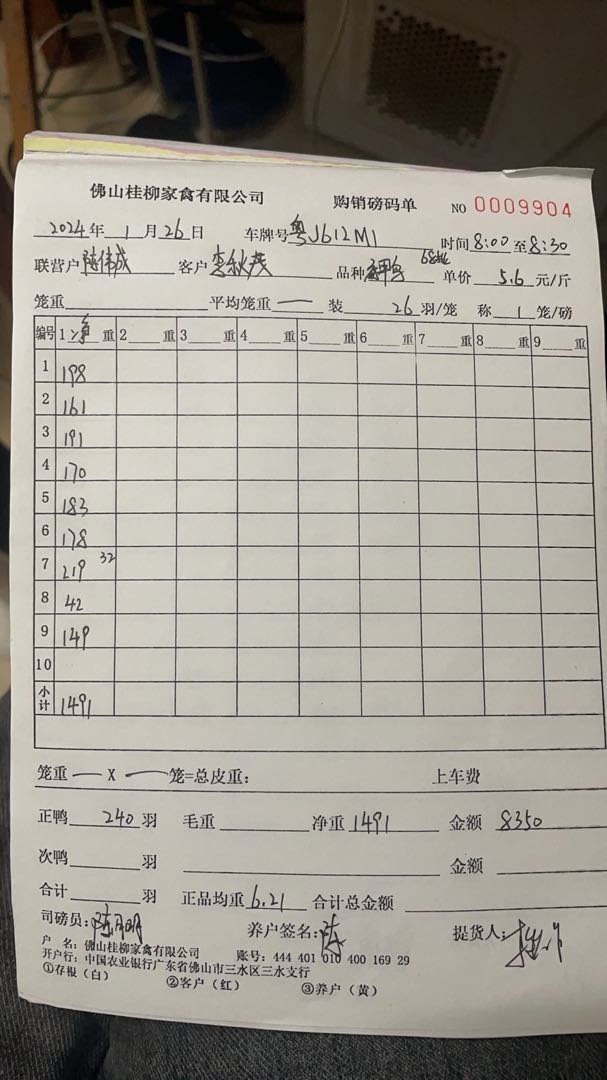 佛山桂柳家禽有限公司 购销磅码单 NO 0009904
2024年 1月26日 车牌号 粤J612M1 时间 8:00 至 8:30
联营户 陈伟成 客户 李秋茂 品种 单价 5.6 元/斤
笼重 平均笼重 — 装 26 羽/笼 称 1 笼/磅
编号 1 净 重 2 重 3 重 4 重 5 重 6 重 7 重 8 重 9 重
1 198
2 161
3 191
4 170
5 183
6 178
7 219 32
8 42
9 149
10
小计 1491
笼重 — X — 笼=总皮重: 上车费
正鸭 240 羽 毛重 净重 1491 金额 8350
次鸭 羽 金额
合计 羽 正品均重 6.21 合计总金额
司磅员: 养户签名: 陈 提货人:
户 名: 佛山桂柳家禽有限公司 账号: 444 401 010 400 169 29
开户行: 中国农业银行广东省佛山市三水区三水支行
①存根（白） ②客户（红） ③养户（黄）